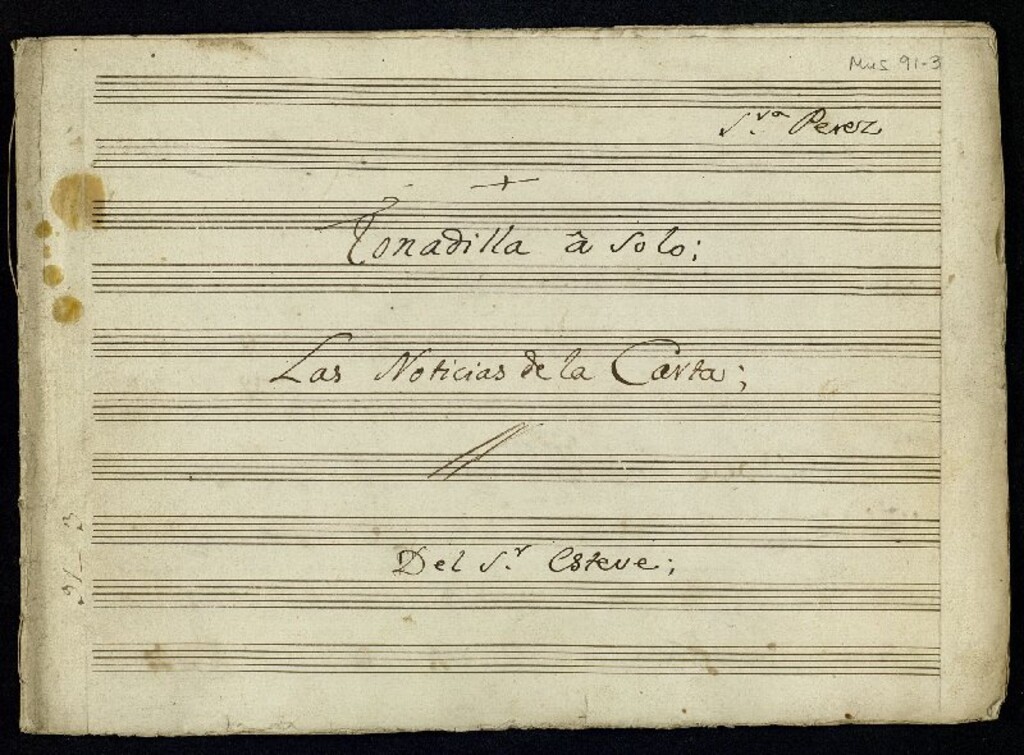 Mus 91-3
S.ra Perez
Tonadilla â Solo;
Las Noticias de la Carta;
Del S.r Esteve;